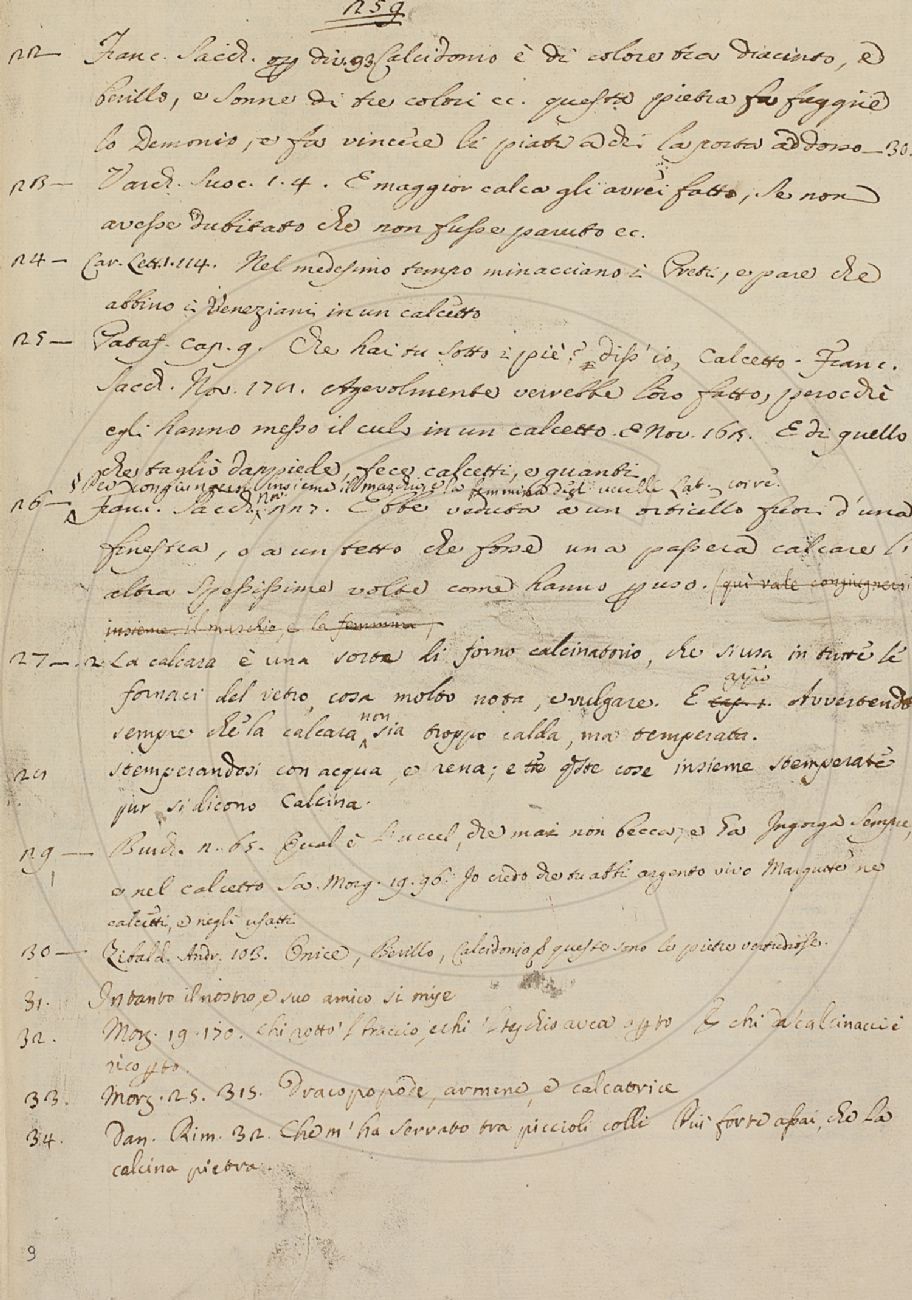 259
22 — Franc. Sacch. op. div. 93 Calcidonio è di colore tra diacinto, e
berillo, e sonne di tre colori ec. questa pietra fa fuggire
lo Demonio, e fa vincere le piati a chi la porta addosso — 30.
23 — Varch. Suoc. 1. 4. E maggior calca gli avrei fatto, se non
avesse dubitato che non fusse paruto ec.
24 — Car. Lett. 1. 114. Nel medesimo tempo minacciano i Preti, e pare che
abbino i Veneziani in un calcetto
25 — Pataf. cap. 9. Che hai tu sotto i piè? diss' io, Calcetto. Franc.
Sacch. Nov. Agevolmente verrebbe loro fatto, perocchè
egli hanno messo il culo in un calcetto. E Nov. E di quello
che tagliò dappiede, fece calcetti, e guanti
Per congiungersi insieme il maschio, e la femmina degl' uccelli Lat. coire.
26 — Franc. Sacch. nov. Ebbe veduta a un orticello fuori d'una
finestra, o a un tetto che fosse una passera calcare l'
altra spessissime volte come hanno per uso. (qui vale congiugnersi
insieme il maschio, e la femmina,
27 —. 2 La calcara è una sorta di forno calcinatorio, che si usa in tutte le
fornaci del vetro, cosa molto nota, e vulgare. E Avvertendo
sempre che la calcara non sia troppo calda, ma temperata.
stemperandosi con acqua, e rena; e tre queste cose insieme stemperate
pur si dicono Calcina.
29, — Burch. n. 65. Qual è l'uccel, che mai non becca, e sta Ingorga sempre,
e nel calcetto sa. Morg. 19. 96. Io credo che tu abbi argento vivo Margutte ne
calcetti, e negli usatti
30 — Zibald. Andr. 103. Onice, Berillo, Calcidonio queste sono le pietre vertudiose.
31. Intanto il nostro, e suo amico si mise
32. Morg. 19. 170. Chi rotto 'l braccio, e chi 'l teschio avea aperto E chi da' calcinacci è
ricoperto.
33. Morg. 25. 315. Dracopopode, armene, e calcatrice
34. Dan. Rim. 32. Che m' ha serrato tra piccioli colli Più forte assai, che la
calcina pietra.
9